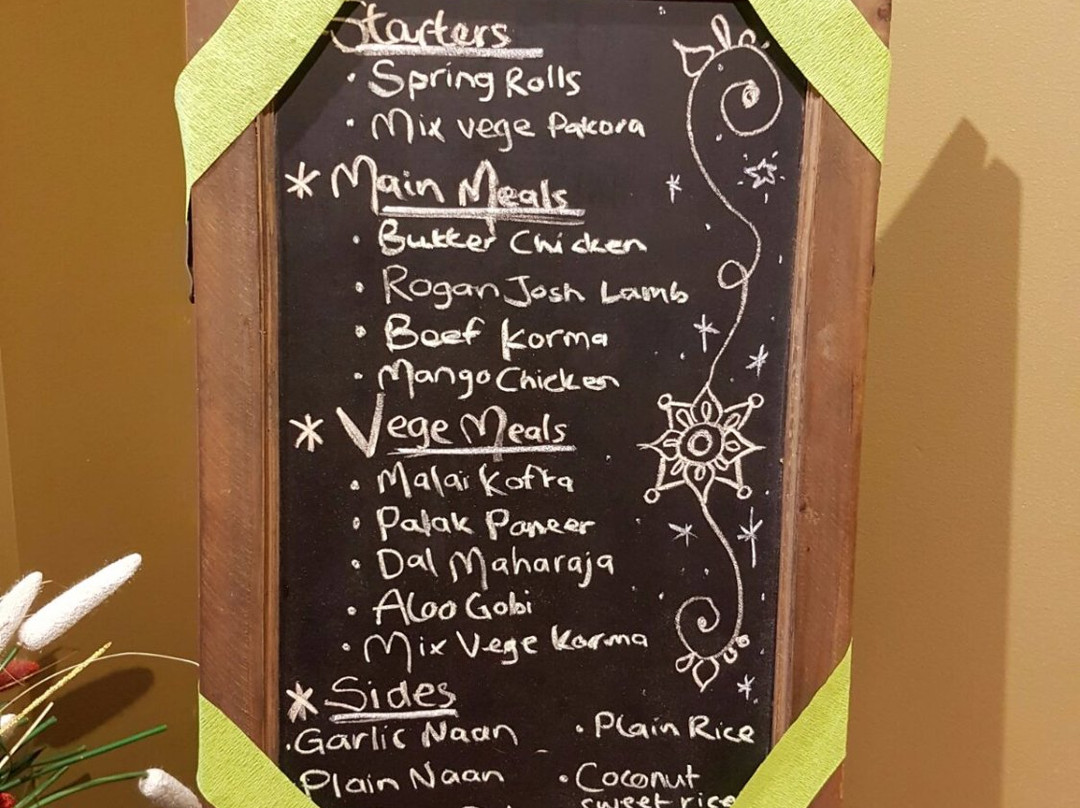 Starters
• Spring Rolls
• Mix vege Pakora
* Main Meals
• Butter Chicken
• Rogan Josh Lamb
• Beef Korma
• Mango Chicken
* Vege Meals
• Malai Kofta
• Palak Paneer
• Dal Maharaja
• Aloo Gobi
• Mix Vege Korma
* Sides
• Garlic Naan
• Plain Rice
Plain Naan
• Coconut
sweet rice